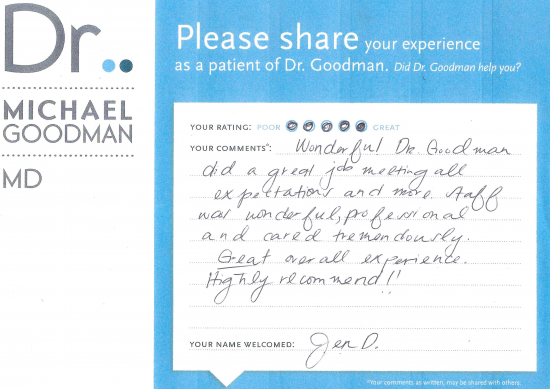 Dr.
MICHAEL
GOODMAN
MD
Please share your experience
as a patient of Dr. Goodman. Did Dr. Goodman help you?
YOUR RATING: POOR GREAT
YOUR COMMENTS*: Wonderful Dr. Goodman
did a great job meeting all
expectations and more. Staff
was wonderful, professional
and cared tremendously.
Great overall experience.
Highly recommend!!
YOUR NAME WELCOMED: Jen D.
*Your comments as written, may be shared with others.